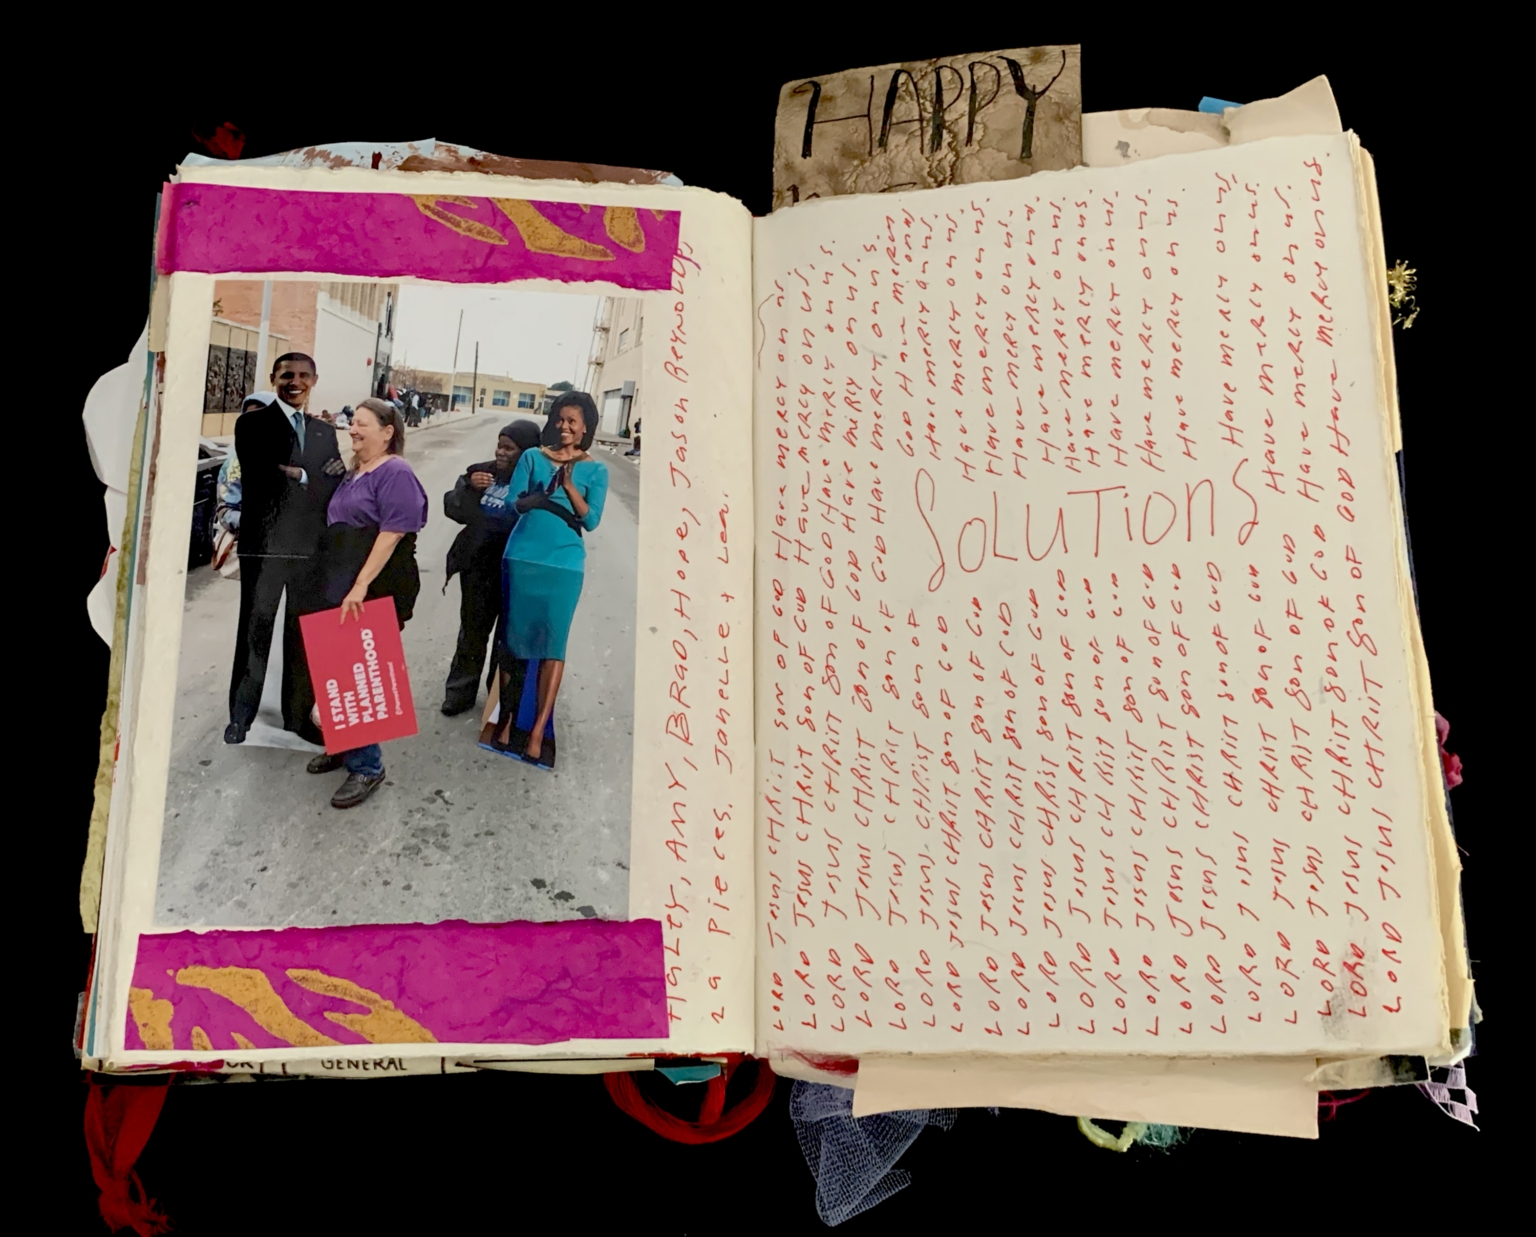 HAPPY
I STAND
WITH
PLANNED
PARENTHOOD
HALEY, AMY, BRAD, HOPE, JASON REYNOLDS,
2 a Pieces. Janelle + Lea.
GENERAL
LORD JESUS CHRIST son OF GOD Have mercy on us.
LORD JESUS CHRIST son OF GOD Have mercy on us.
LORD JESUS CHRIST son OF GOD Have mercy on us.
LORD JESUS CHRIST son OF GOD Have mercy on us.
LORD JESUS CHRIST son OF GOD Have mercy on us.
LORD JESUS CHRIST son OF GOD Have mercy on us
LORD JESUS CHRIST son OF GOD Have mercy on us.
LORD JESUS CHRIST son OF GOD Have mercy on us.
LORD JESUS CHRIST son OF GOD Have mercy on us.
LORD JESUS CHRIST son OF GOD Have mercy on us.
LORD JESUS CHRIST son OF GOD Have mercy on us.
LORD JESUS CHRIST son OF GOD Have mercy on us.
LORD JESUS CHRIST son OF GOD Have mercy on us.
LORD JESUS CHRIST son OF GOD Have mercy on us.
LORD JESUS CHRIST son OF GOD Have mercy on us.
LORD JESUS CHRIST son OF GOD Have mercy on us
LORD JESUS CHRIST son OF GOD Have mercy on us.
LORD JESUS CHRIST son OF GOD Have mercy on us.
LORD JESUS CHRIST son OF GOD Have mercy on us.
LORD JESUS CHRIST son OF GOD Have mercy on us.
SOLUTIONS